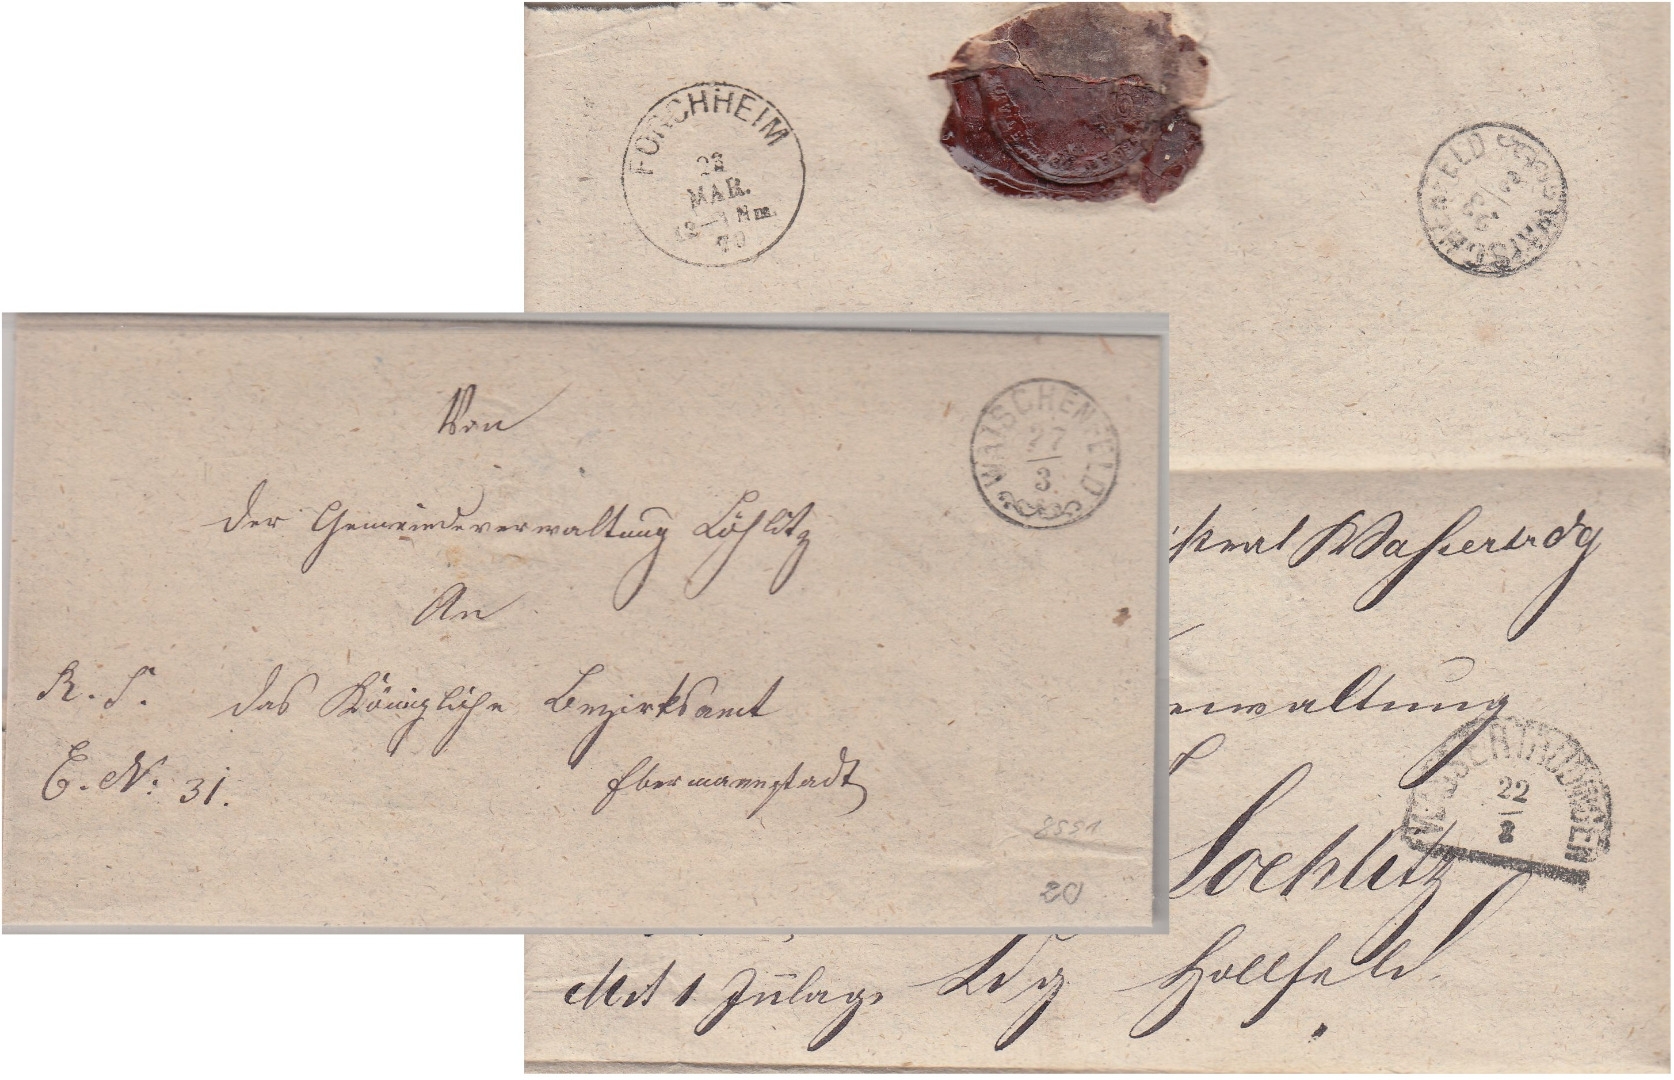 FORCHHEIM
23
MAR.
12 – 1 Nm.
70
WAISCHENFELD
23
3
Von
der Gemeindeverwaltung Löhlitz
An
R. S. das Königliche Bezirksamt
E. N: 31.
Ebermannstadt
WAISCHENFELD
27
3.
8591
20
Wassertrdg
rwaltung
WASSERTRÜDINGEN
22
3
Loehlitz
Mit 1 Zulage Ldg Hollfeld.